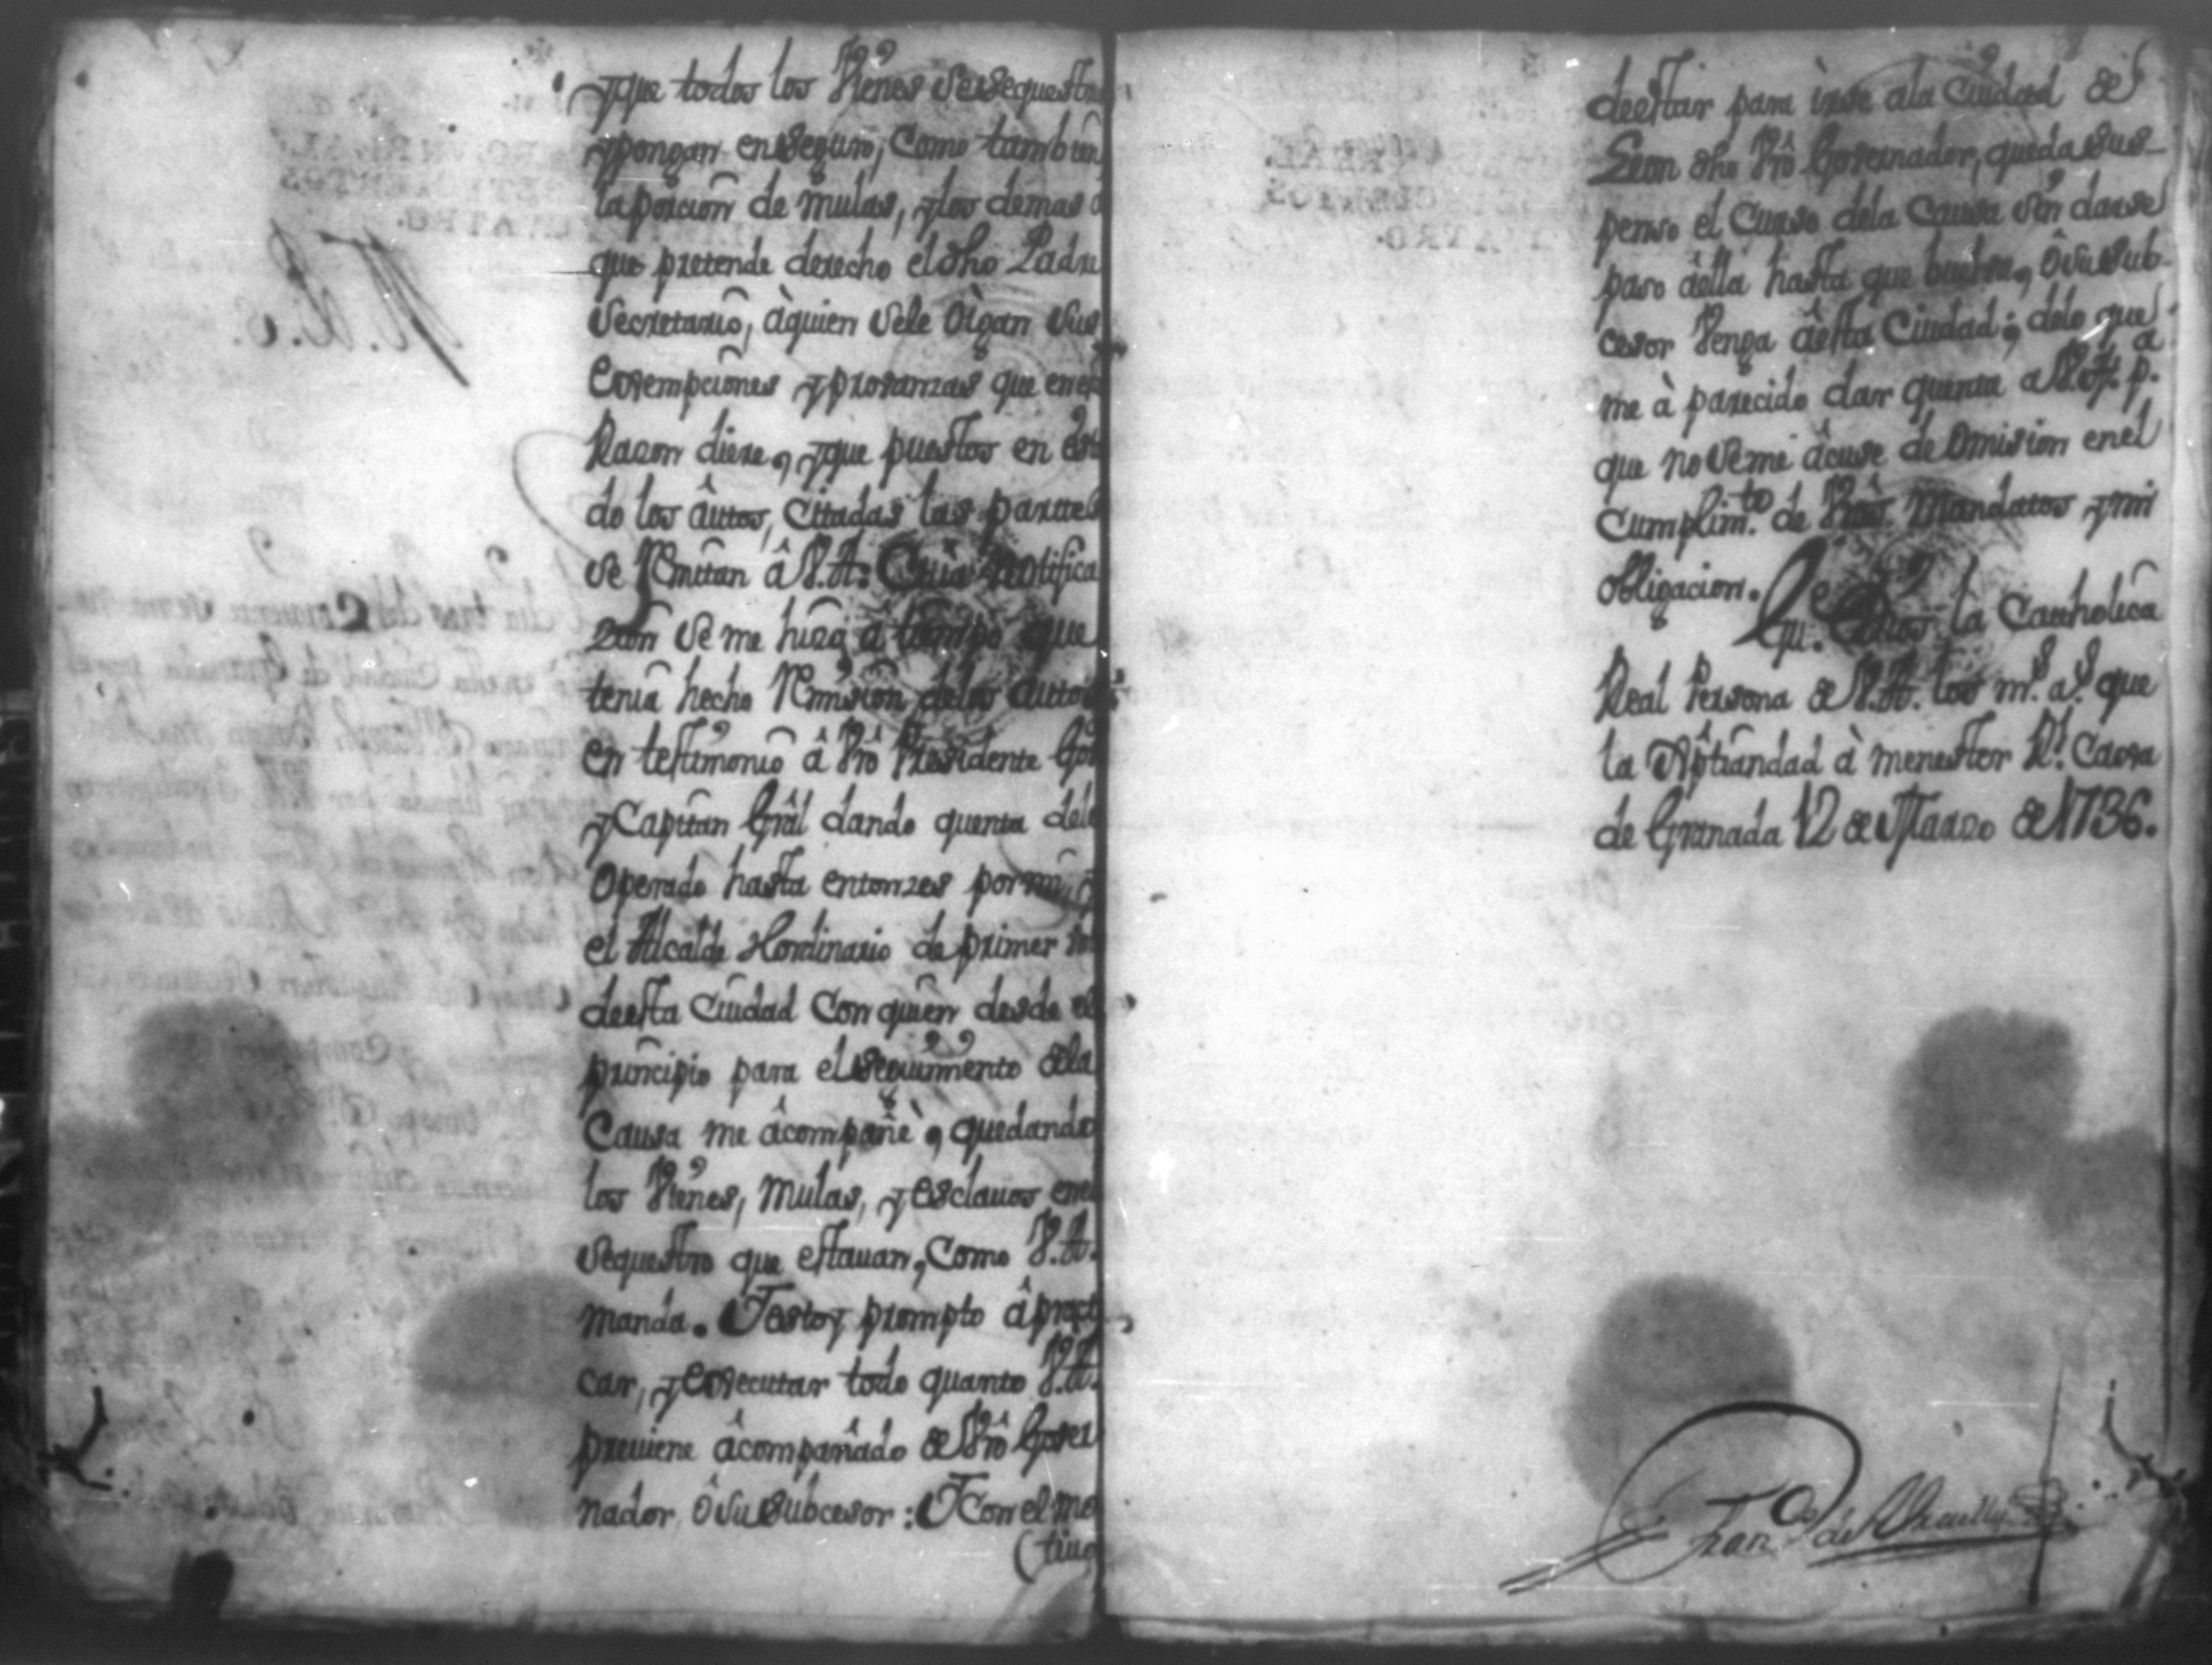 yque todos los Vienes se sequestre
ypongan en seguro, Como tambien
la porcion de mulas, ylos demas
que pretende derecho el dho Padre
Secretario, àquien sele Oigan sus
Exempciones yprovanzas que en esta
Razon diere, yque puestos en esta
do los âutos, Citadas las partes
se Remitan â V.A. Cuia notifica
zion se me hizo a tiempo que
tenia hecho Remision delos autos
en testimonio â Vro Presidente Gov
yCapitan Grâl dando quenta delo
Operado hasta entonzes por mi, y
el Alcalde Hordinario de primer vo
deesta Ciudad Con quien desde el
principio para el seguimiento dela
Causa me âcompañè, quedando
los Vienes, Mulas, y esclauos en el
sequestro que estauan, Como V.A.
manda. Y estoy prompto â practi
car, y executar todo quanto V.A.
preuiene âcompañado de Vrô Gover
nador, ô su subcesor: Y Con el mo
(tiuo
deestar para irse ala Ciudad de
Leon dho Vrô Governador, queda sus-
penso el Curso dela Causa sin darse
paso âella hasta que buelva, ô su sub-
cesor Venga âesta Ciudad; delo que
me à parecido dar quenta a V.A. pª
que no seme âcuse de Omision en el
Cumplim.to de Vros. Mandatos y mi
obligacion.
Gu.e Dios la Catholica
Real Persona de V.A. los m.s a.s que
la Xptiandad à menester R.l Caxa
de Granada 12 de Marzo de 1736.
Fran.co de